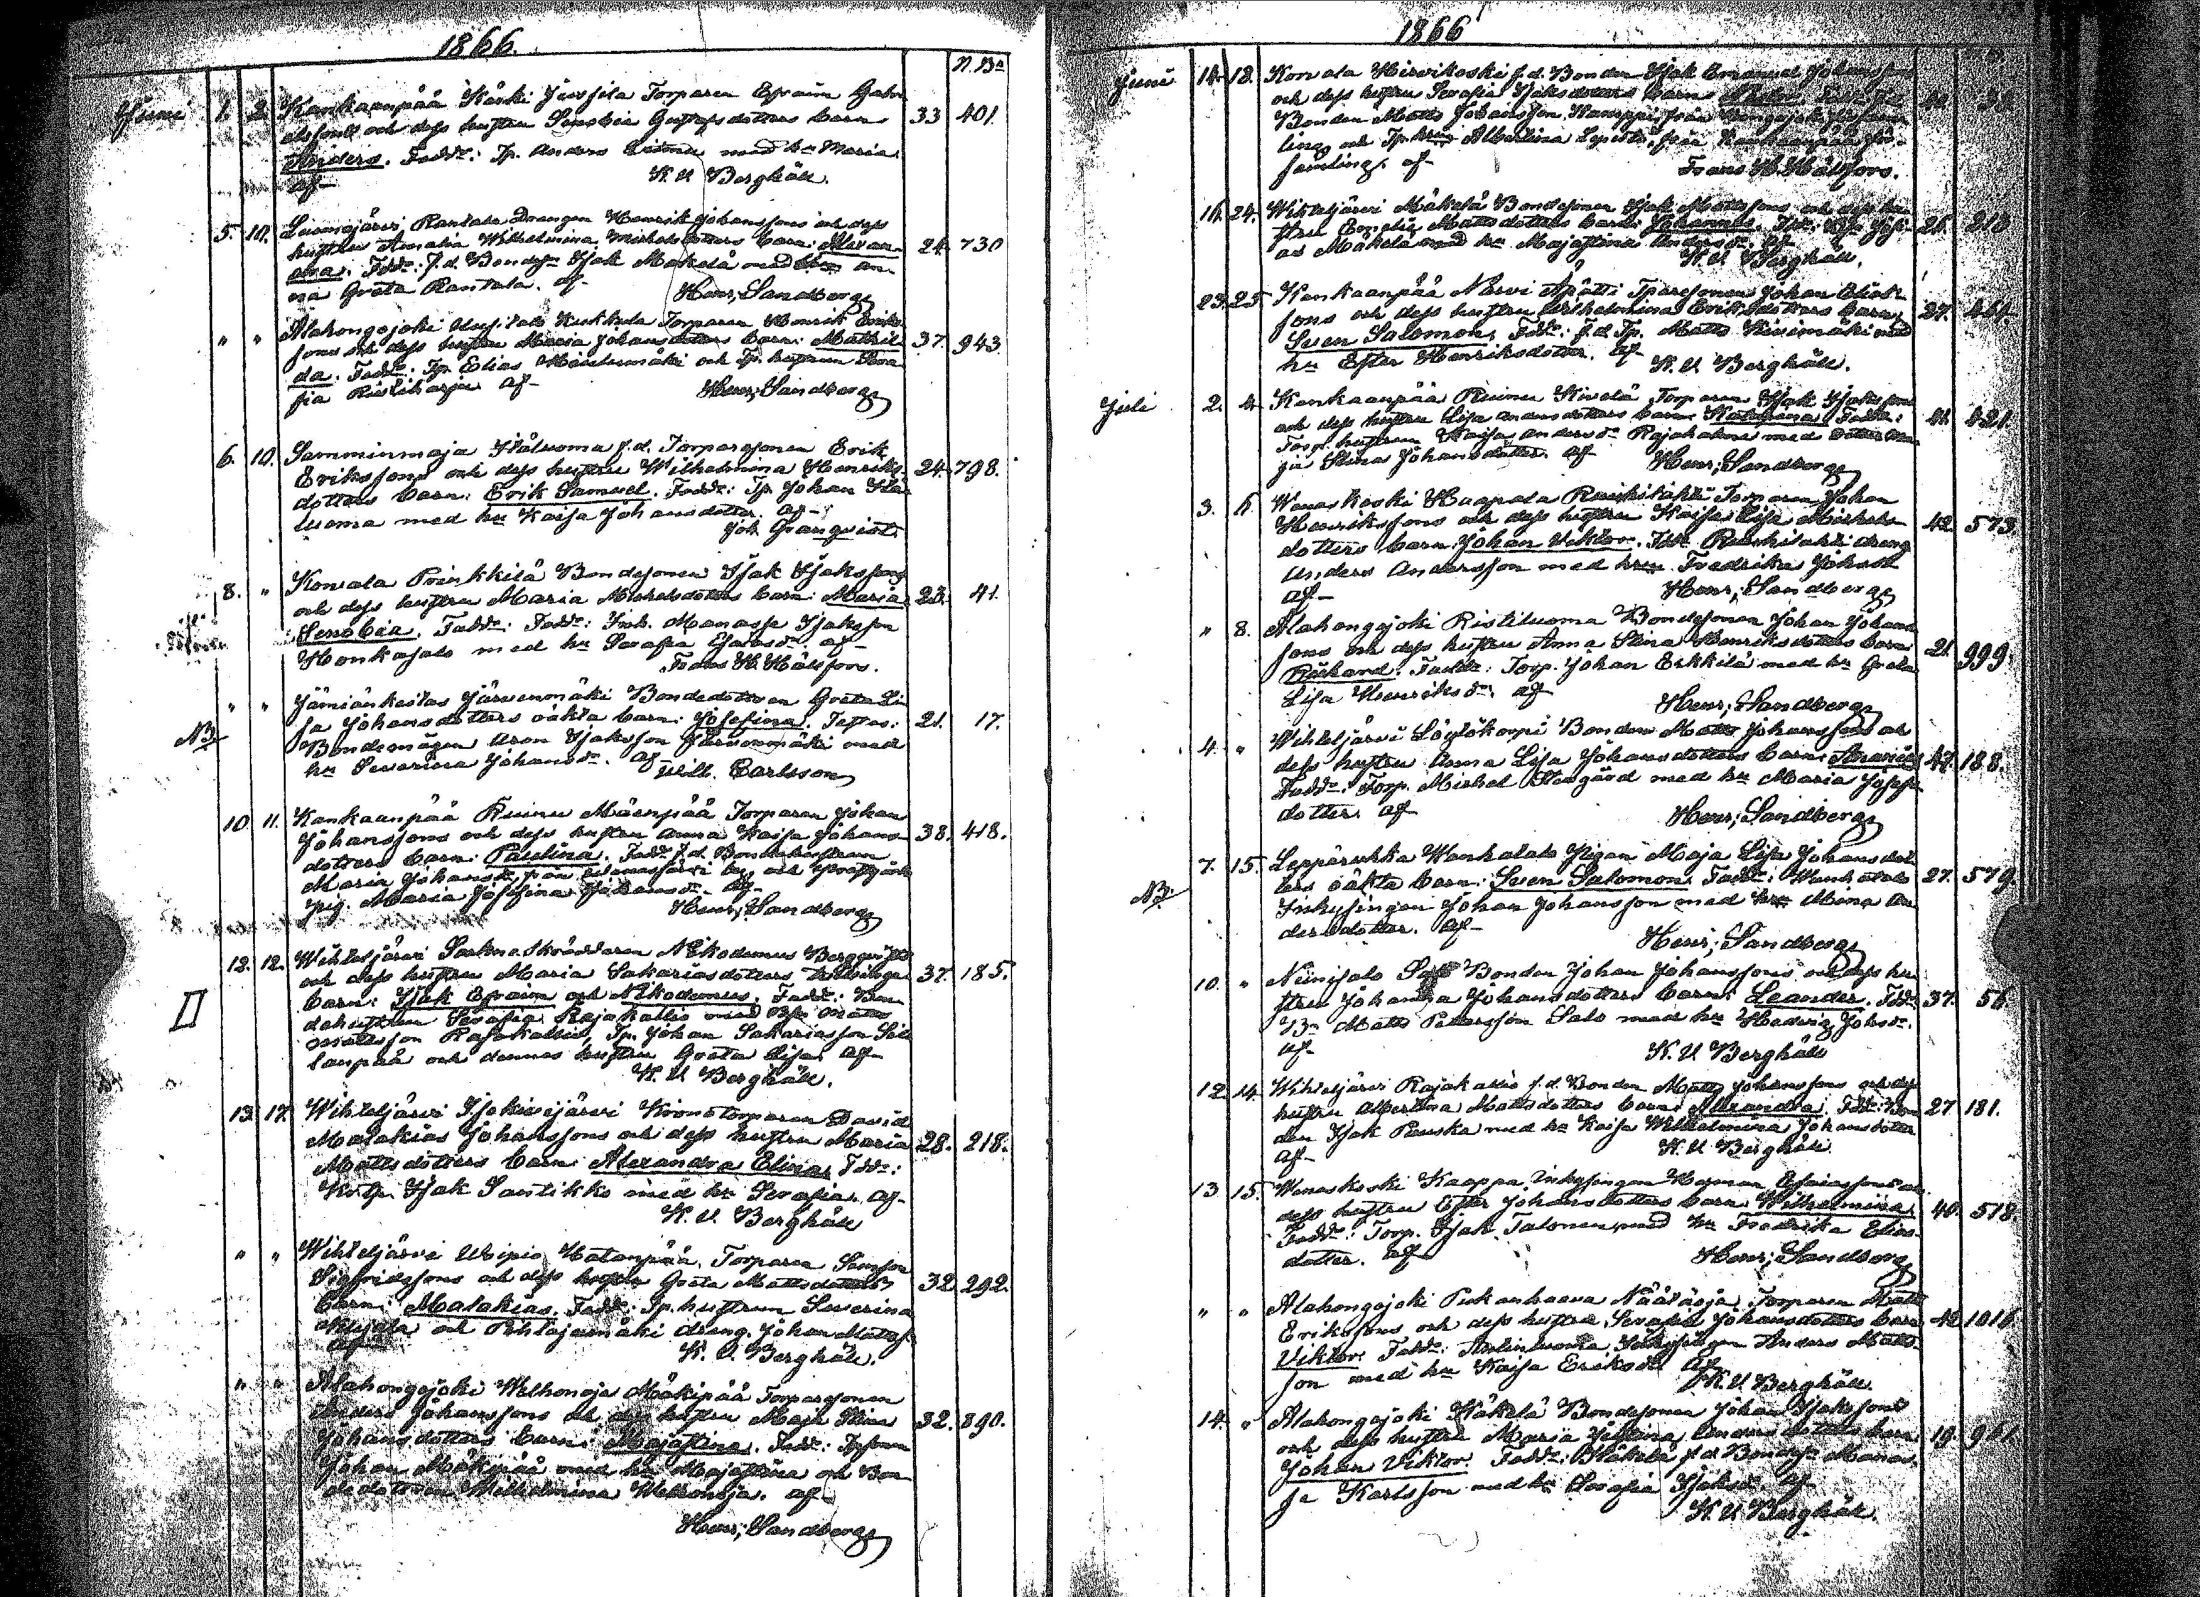 1866
N. Ba
Juni 1. 2. Kankaanpää Käski Jussila Torparen Efraim Gabri
elssons och dess hustru Senobia Gustafsdotters barn 33 401.
Anders. Fadd: Tp. Anders med hu Maria.
af K. U. Berghäll.
5. 10. Luomajärvi Rantala Drängen Henrik Johanssons och dess
hustru Amalia Wilhelmina Michelsdotters barn: Alexan- 24. 730
dra. Fadd: f.d. Bondesn Isak Mäkelä med hu An-
na Greta Rantala. af Henr; Sandberg
" " Alahongojoki Uusitalo Kukkula Torparen Henrik Eriks-
sons och dess hustru Maria Johansdotters barn: Mathil- 37. 943
da. Fadd: Tp. Elias och Tp. hustrun Sera-
fia Ristiharju af Henr; Sandberg
6. 10. Samminmaja Ylåluoma f.d. Torparesonen Erik
Erikssons och dess hustru Wilhelmina Henriks- 24. 798.
dotters barn: Erik Samuel. Fadd: Tp Johan Ylå-
luoma med hu Kaisa Johansdotter. af
Joh. Granqvist.
8. " Konsala Prinkkilä Bondesonen Isak Isakssons
och dess hustru Maria Michelsdotters barn: Maria 23. 41.
Senobia. Fadd: Fadd: Inh. Manasse Isaksson
Honkasalo med hu Serafia Esaiasd. af
Frans H. Hälsfors.
" " Jämiänkeitas Järvenmäki Bondedottren Greta Li-
NB sa Johansdotters oäkta barn: Josefina. Testes: 21. 17.
Bondemågen Aron Isaksson Järvenmäki med
hu Severina Johansd. af Wilh. Carlsson
10 11. Kankaanpää Ruinu Mäenpää Torparen Johan
Johanssons och dess hustru Anna Kaisa Johans- 38. 418.
dotters barn: Paulina. Fadd f.d. Bondehustrun
Maria Johansd. från by, och
pig. Maria Josefina Johansd. af
Henr; Sandberg
12. 12. Wihteljärvi Sockneskräddaren Nikodemus Bergqvists
och dess hustru Maria Sakariasdotters tvillinge 37. 185.
barn: Isak Efraim och Nikodemus. Fadd: Bon-
II dehustrun Serafia Rajakallio med Matts
Mattsson Rajakallio, Tp. Johan Sakariasson Sil-
lanpää och dennes hustru Greta Lisa. af
K. U. Berghäll.
13. 17. Wihteljärvi Isokivijärvi Kronotorparen David
Malakias Johanssons och dess hustru Maria 28. 218.
Mattsdotters barn: Alexandra Elina. Fadd:
Krtp. Isak Santikko med hu Serafia. af
K. U. Berghäll
" " Wihteljärvi Uipio Katanpää Torparen Simson
Sigfridssons och dess hustru Greta Mattsdotters 32. 292.
barn: Malakias. Fadd: Tp. hustrun Severina
och Pohlajamäki dräng Johan
af K. U. Berghäll.
" " Alahongojoki Welhonoja Mäkipää Torparesonen
Anders Johanssons och dess hustru Maja Stina 32. 890.
Johansdotters barn: Majastina. Fadd:
Johan Mäkipää med hu Majastina och Bon-
dedottren Wilhelmina Welhonoja. af
Henr; Sandberg
1866
Juni 14. 18. Konsala Hirvikoski f.d. Bonden Isak Emanuel Johanssons
och dess hustru Serafia Isaksdotters barn
Bonden Matts Johansson Kamppi från Hongojoki försam-
ling och Tp. Albertina Lepistö från Kankaanpää för-
samling. af Frans H. Hälsfors.
16. 24. Wihteljärvi Mäkelä Bondesonen Isak Mattssons och dess hu-
stru Emelie Mattsdotters barn: Johannes. Fadd: Josef- 25. 210
as Mäkelä med hu Majastina Andersd. af
K. U. Berghäll.
23. 25. Kankaanpää Närvi Äpätti Tparesonen Johan Elias-
sons och dess hustru Wilhelmina Eriksdotters barn: 27. 461.
Sven Salomon. Fadd: f.d. Tp. Matts med
hu Ester Henriksdotter. af K. U. Berghäll.
Juli 2. 4. Kankaanpää Ruinu Kivelä Torparen Isak Isakssons
och dess hustru Lisa Andersdotters barn: Katarina. Fadd: 41. 421.
Torp. hustrun Kaisa Andersd. Rajahalme med dotter Ma-
ja Stina Johansdotter. af Henr; Sandberg
3. 6. Wenaskoski Haapala Ruskilahti Torparen Johan
Henrikssons och dess hustru Kaisa Lisa Michels- 42. 573.
dotters barn: Johan Viktor. Fadd: Ruskilahti dräng
Anders Andersson med hu Fredrika Johsd.
af Henr; Sandberg
" 8. Alahongojoki Ristiluoma Bondesonen Johan Johans-
sons och dess hustru Anna Stina Henriksdotters barn: 21. 999.
Rickard. Fadd: Torp. Johan Erkkilä med hu Greta
Lisa Henriksd. af Henr; Sandberg
4. " Wihteljärvi Löytökorpi Bonden Matts Johanssons och
dess hustru Anna Lisa Johansdotters barn: Ananias. 47. 188.
Fadd: Torp. Michel Skogård med hu Maria Josefs-
dotter. af Henr; Sandberg
7. 15. Leppärukka Wanhatalo Pigan Maja Lisa Johansdot-
NB ters oäkta barn: Sven Salomon. Fadd: Wanhatalo 27. 579
Inhysingen Johan Johansson med hu Mina An-
dersdotter. af Henr; Sandberg
10. " Niinisalo Salo Bonden Johan Johanssons och dess hu-
stru Johanna Johansdotters barn: Leander. Fadd: 37. 56.
Bn Matts Pettersson Salo med hu Hedvig Johsd.
af K. U. Berghäll
12. 14. Wihteljärvi Rajakallio f.d. Bonden Matts Johanssons och dess
hustru Albertina Mattsdotters barn: Alexandra. Fadd: Bon- 27 181.
den Isak Pauska med hu Kaisa Wilhelmina Johansdotter
af K. U. Berghäll
13 15. Wenaskoski Kaappa Inhysingen Herman Esaiassons och
dess hustru Ester Johansdotters barn: Wilhelmina. 40. 518.
Fadd: Torp. Isak Salonen med hu Fredrika Elias-
dotter. af Henr; Sandberg
" " Alahongojoki Pukanhaava Näätäoja Torparen Matts
Erikssons och dess hustru Serafia Johansdotters barn 42 1016.
Viktor. Fadd: Inhysingen Anders Matts-
son med hu Kaisa Eriksd. af
K. U. Berghäll.
14. " Alahongojoki Häkelä Bondesonen Johan Isakssons
och dess hustru Maria Justina Andersdotters barn: 19. 961.
Johan Viktor. Fadd: Häkelä f.d. Bondesn Manas-
se Karlsson med hu Serafia Isaksd. af
K. U. Berghäll.